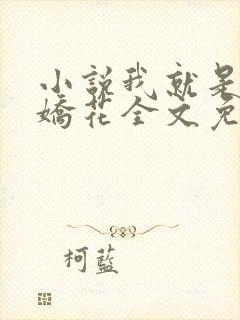 小說我就是
嬌花全文免
柯藍